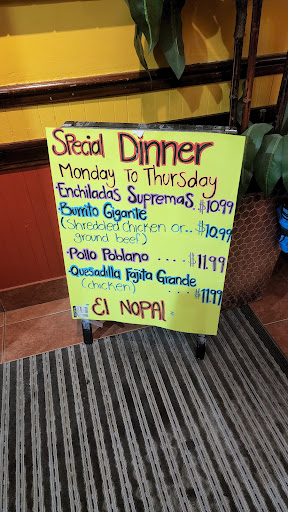 Special Dinner
Monday To Thursday
Enchiladas Supremas. $10.99
Burrito Gigante
(shredded chicken or.. $10.99
ground beef)
Pollo Poblano .... $11.99
Quesadilla Fajita Grande
(chicken) .... $11.99
El NOPAl